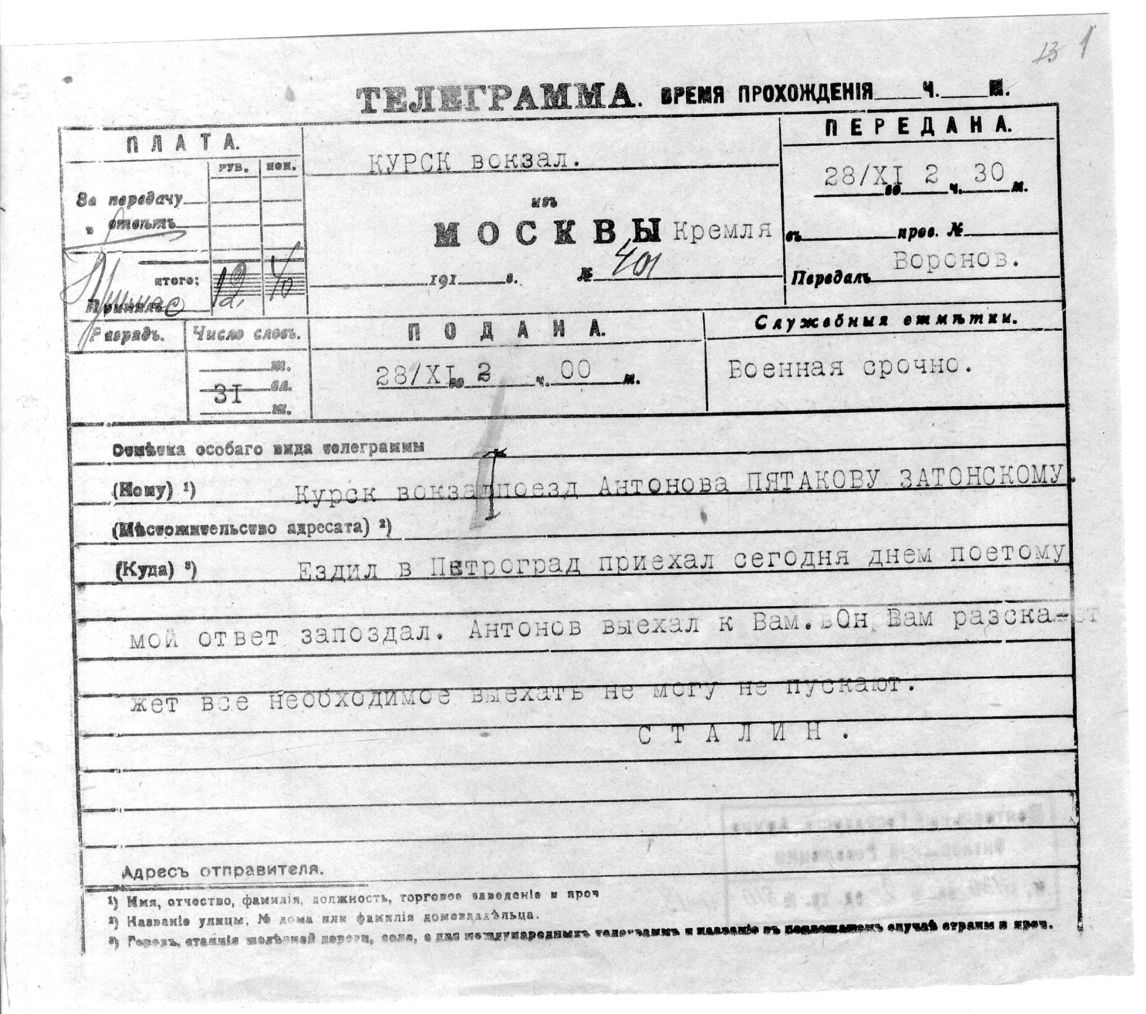 13 1
ТЕЛЕГРАММА. ВРЕМЯ ПРОХОЖДЕНІЯ Ч. М.
ПЛАТА.
РУБ. КОП.
За передачу
" отвѣтъ
ИТОГО: 12. 40
Принялъ
КУРСК вокзал.
изъ
МОСКВЫ Кремля
191 г. № 401
ПЕРЕДАНА.
28/XI го 2 ч. 30 м.
въ пров. №
Передалъ Воронов.
Разрядъ.
Число словъ.
т.
31 сл.
т.
ПОДАНА.
28/XI го 2 ч. 00 м.
Служебныя отмѣтки.
Военная срочно.
Отмѣтка особаго вида телеграммы
(Кому) ¹) Курск вокзал поезд Антонова ПЯТАКОВУ ЗАТОНСКОМУ
(Мѣстожительство адресата) ²)
(Куда) ³) Ездил в Петроград приехал сегодня днем поетому
мой ответ запоздал. Антонов выехал к Вам. Он Вам разска-
жет все необходимое выехать не могу не пускают.
СТАЛИН.
Адресъ отправителя.
¹) Имя, отчество, фамилія, должность, торговое заведеніе и проч
²) Названіе улицы, № дома или фамилія домовладѣльца.
³) Городъ, станція желѣзной дороги, село, а для международныхъ телеграммъ и названіе въ подлежащемъ случаѣ страны и проч.